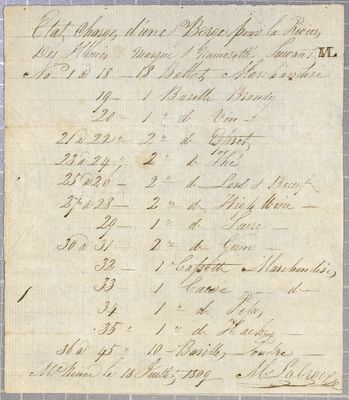 Etat Charge, d'une Berge pour la Riviere
Des Illinois Marque & Numerotté Suivant ML
No. 1 à 18 — 18 Ballots Marchandise
19 — 1 Barille Brandy
20 — 1 " de Vin
21 à 22 " 2 " de
23 à 24 " 2 " de Thé
25 à 26 — 2 " de Lard & Boeuf
27 à 28 — 2 " de High Wine
29 — 1 " de Sucre
30 à 31 — 2 " de Gum
32 — 1 " Cassette Marchandise,
33 — 1 Caisse — d —
34 1 " de Pipe,
35 " 1 " de Haches
36 à 45 " 10 — Barille, Poudre
McKinac le 18 Juillet 1809 M LaCroix